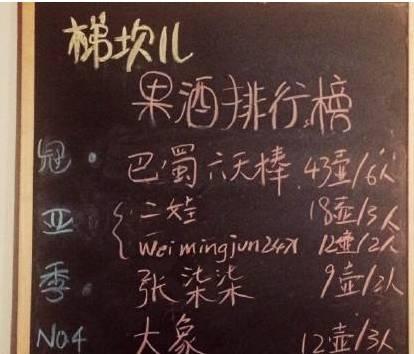 梯坎儿
果酒排行榜
冠. 巴蜀六天棒. 43壶/6人
亚 二娃 18壶/3人
Weimingjun24x 12壶/2人
季. 张柒柒 9壶/2人
No.4 大象 12壶/3人